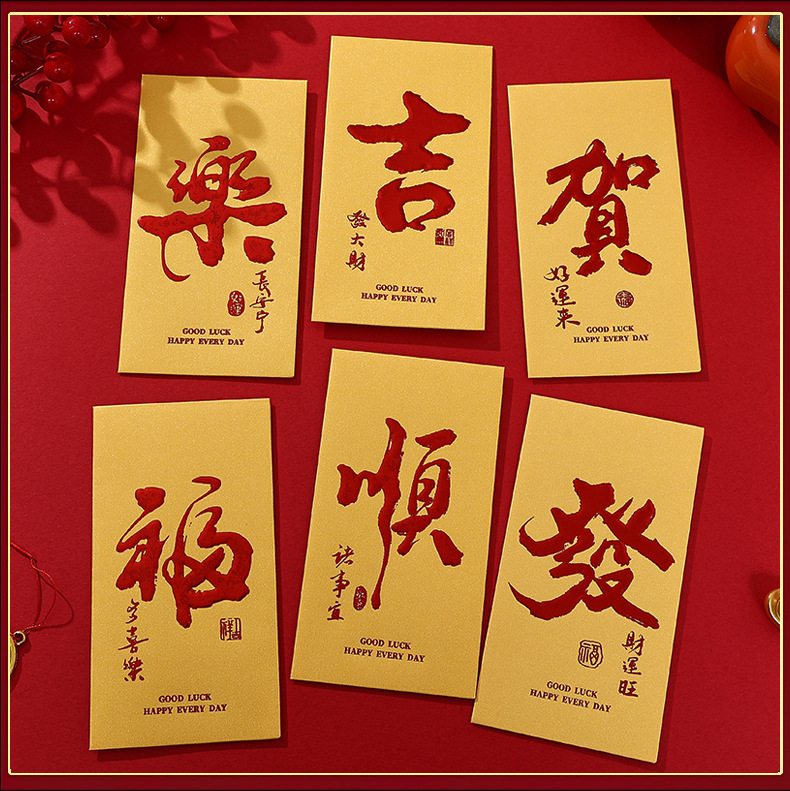 樂
長安宁
GOOD LUCK
HAPPY EVERY DAY
吉
發大財
GOOD LUCK
HAPPY EVERY DAY
賀
好運来
GOOD LUCK
HAPPY EVERY DAY
福
多喜樂
GOOD LUCK
HAPPY EVERY DAY
順
諸事宜
GOOD LUCK
HAPPY EVERY DAY
發
財運旺
福
GOOD LUCK
HAPPY EVERY DAY